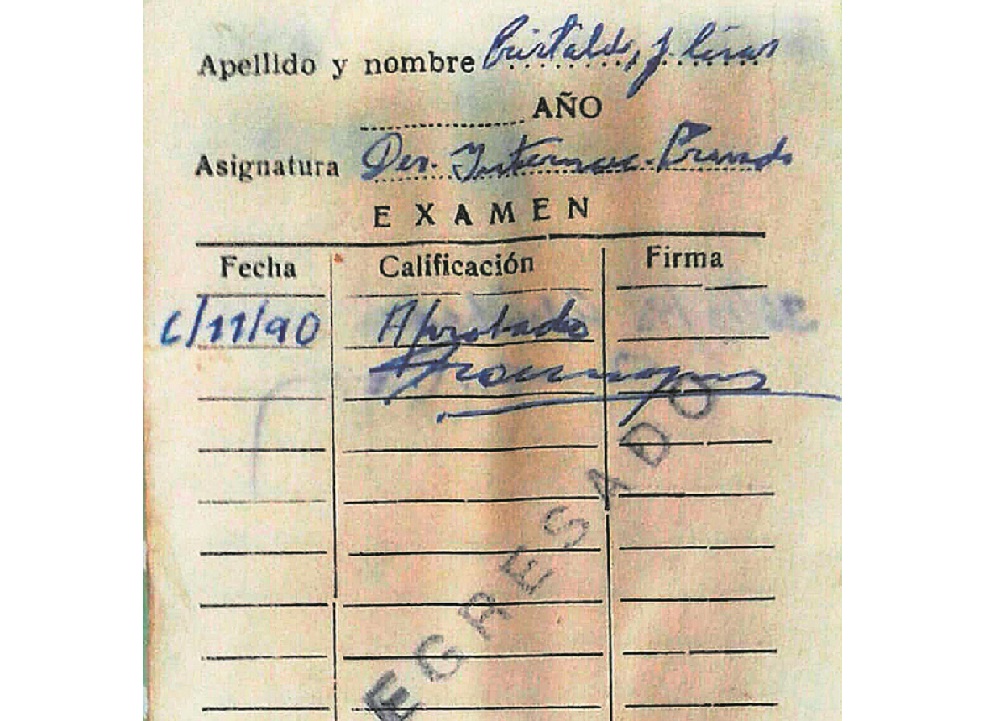 Apellido y nombre
AÑO
Asignatura Der. Internac. Privado
EXAMEN
Fecha Calificación Firma
6/11/90 Aprobado
EGRESADO